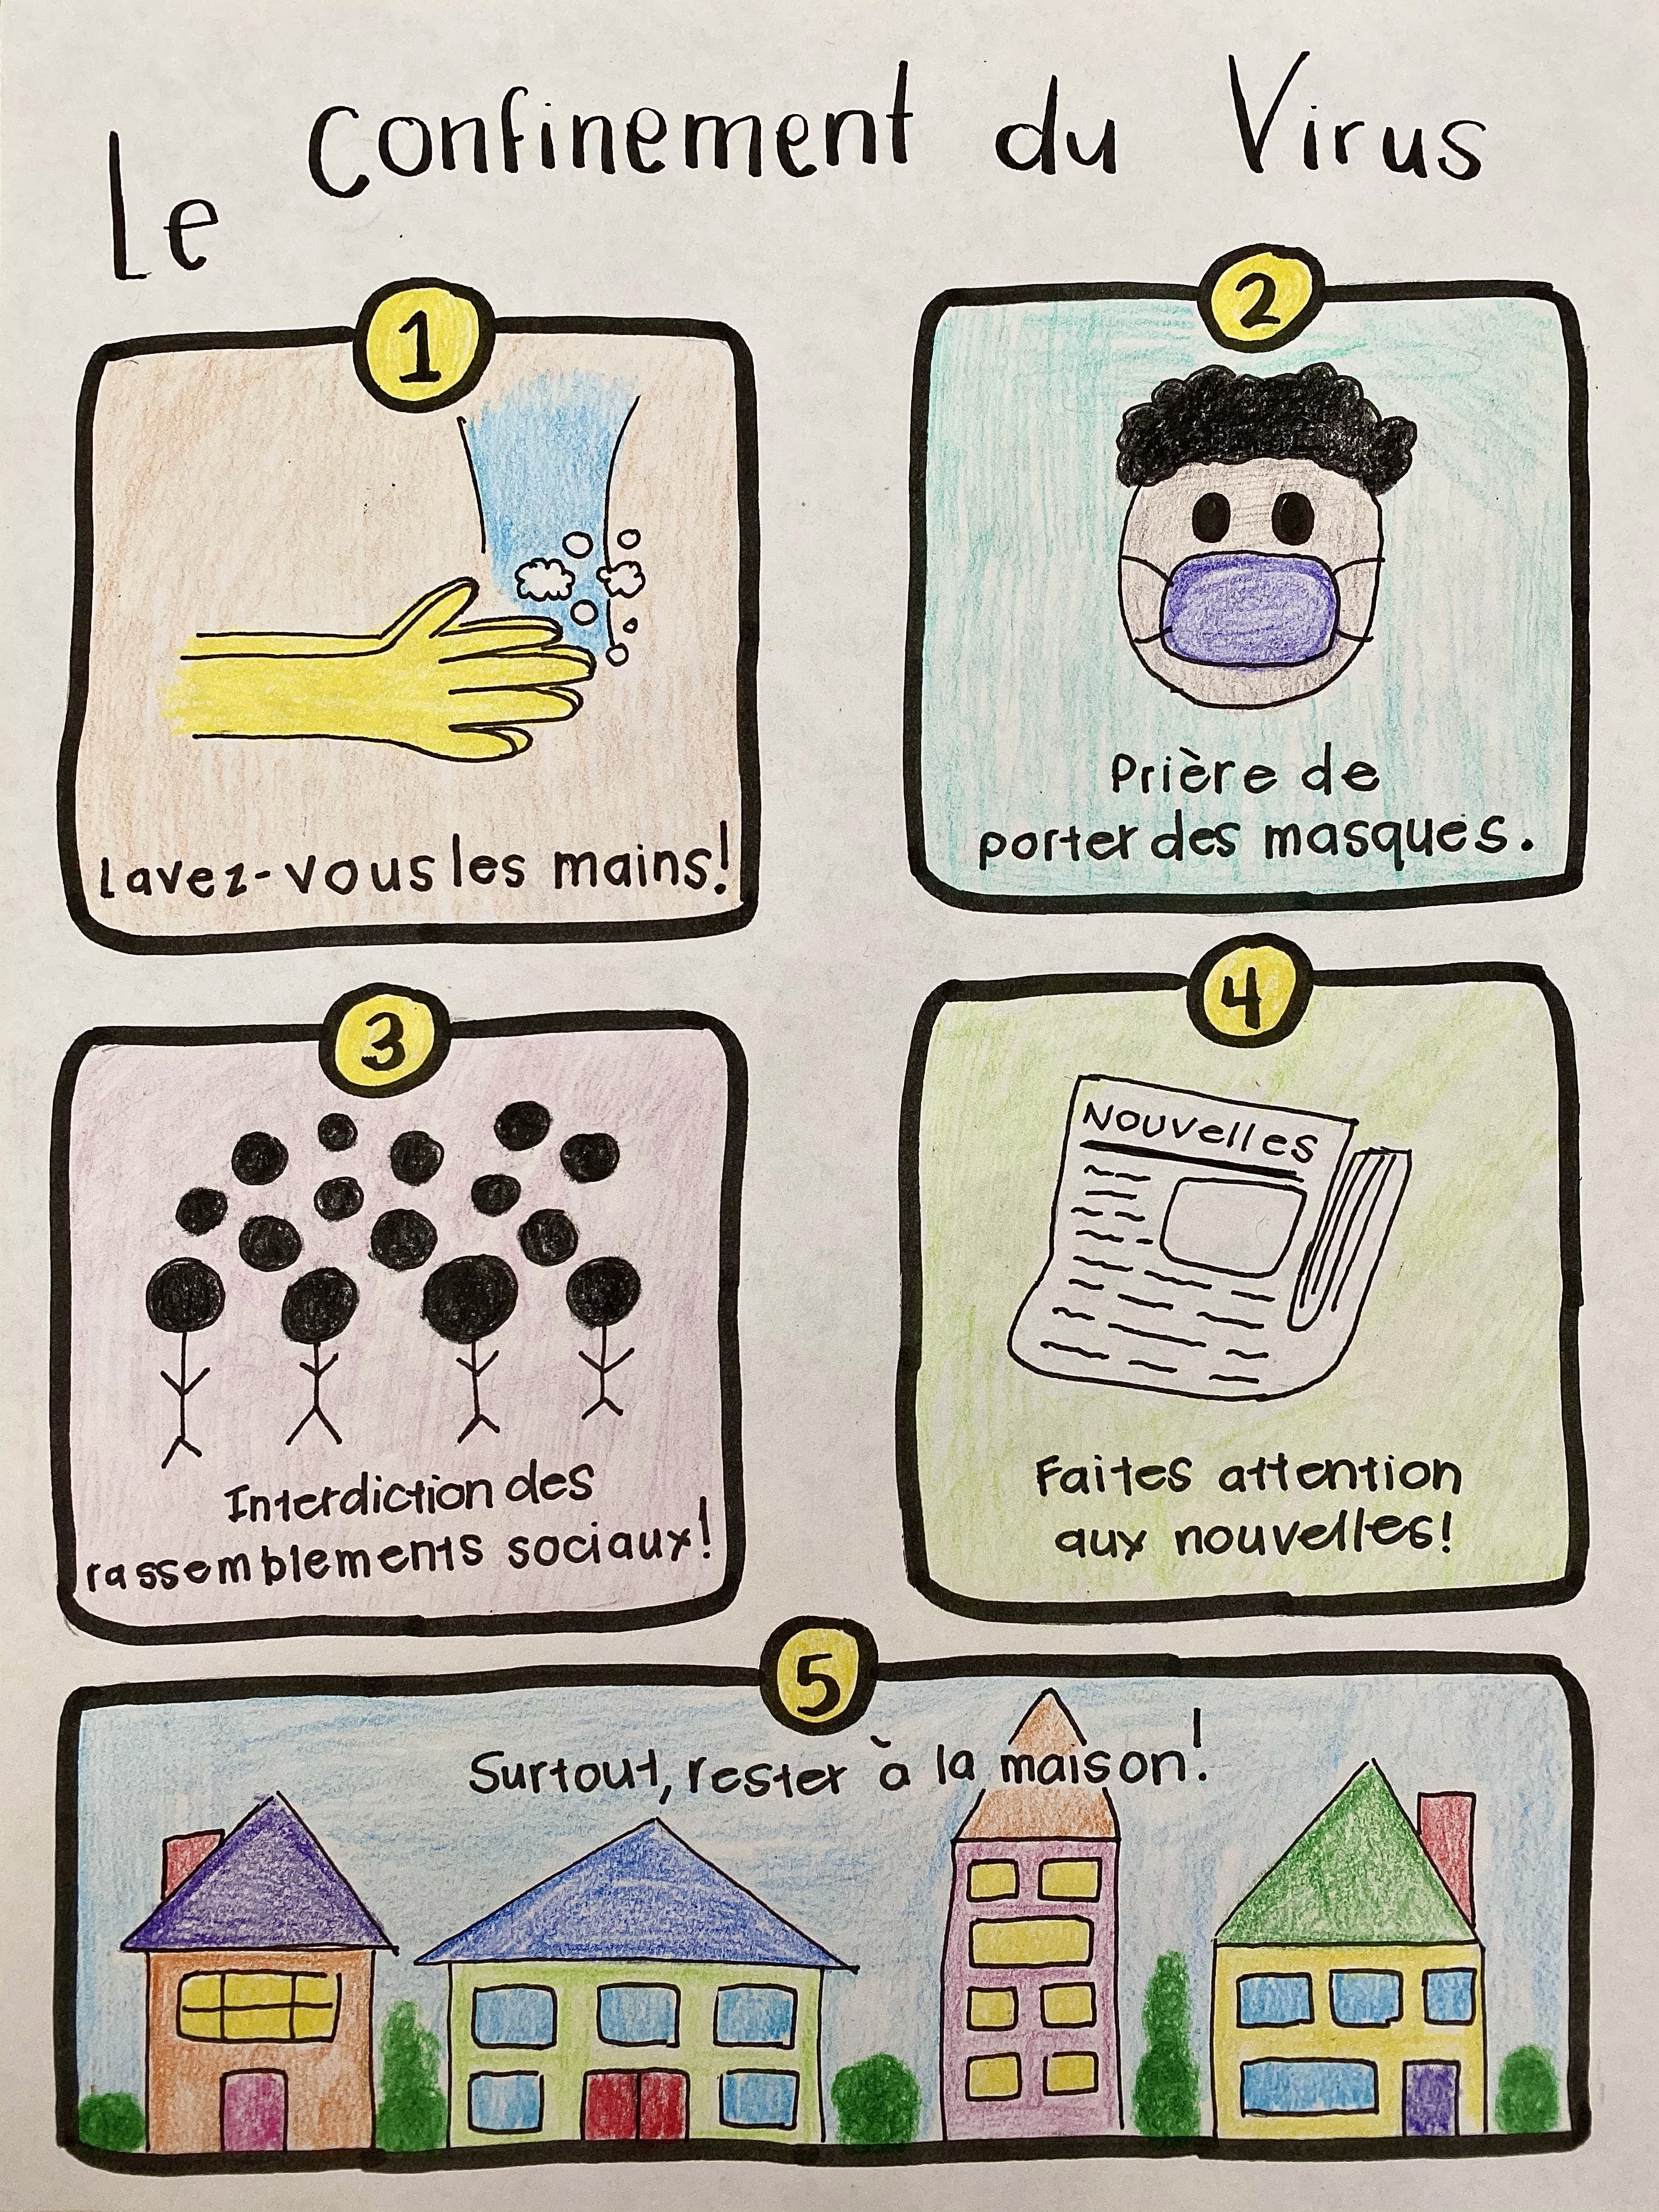 Le Confinement du Virus
1
Lavez-vous les mains!
2
Prière de
porter des masques.
3
Interdiction des
rassemblements sociaux!
4
Nouvelles
Faites attention
aux nouvelles!
5
Surtout, rester à la maison!